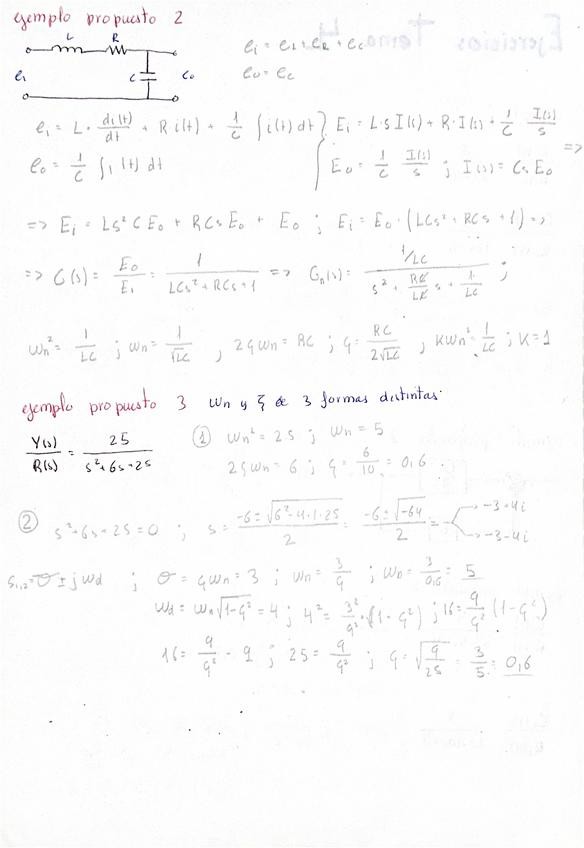 ejemplo propuesto 2
L R
ei C eo
ei = eL + eR + ec
eo = ec
ei = L · di(t)/dt + R i(t) + 1/C ∫ i(t) dt } Ei = L·s I(s) + R·I(s) + 1/C I(s)/s =>
eo = 1/C ∫ i (t) dt { Eo = 1/C I(s)/s ; I(s) = Cs Eo
=> Ei = Ls² C Eo + RCs Eo + Eo ; Ei = Eo · (LCs² + RCs + 1) =>
=> G(s) = Eo/Ei = 1/(LCs² + RCs + 1) => Gn(s) = (1/LC)/(s² + RC/LC s + 1/LC) ;
ωn² = 1/LC ; ωn = 1/√LC , 2ζωn = RC ; ζ = RC/2√LC , Kωn² = 1/LC ; K = 1
ejemplo propuesto 3 ωn y ξ de 3 formas distintas
Y(s)/R(s) = 25/(s² + 6s + 25)
① ωn² = 25 ; ωn = 5
2ζωn = 6 ; ζ = 6/10 = 0,6
② s² + 6s + 25 = 0 ; s = (-6 ± √(6² - 4·1·25))/2 = (-6 ± √-64)/2 = -3+4i
-3-4i
s1,2 = σ ± j ωd ; σ = ζωn = 3 ; ωn = 3/ζ ; ωn = 3/0,6 = 5
ωd = ωn √(1-ζ²) = 4 ; 4² = 3²/ζ² · (1-ζ²) ; 16 = 9/ζ² (1-ζ²)
16 = 9/ζ² - 9 ; 25 = 9/ζ² ; ζ = √(9/25) = 3/5 = 0,6